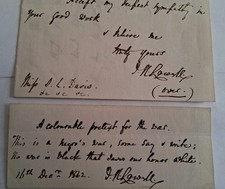 Accept my deepest sympathy in
your good work
& believe me
truly yours
J. R. Lowell
(over)
Miss S. L. Davis
&c &c &c
A colourable pretext for the war.
This is a negro's war, some say & write;
He was is black that owns one honor white.
16th Decr. 1862. J. R. Lowell